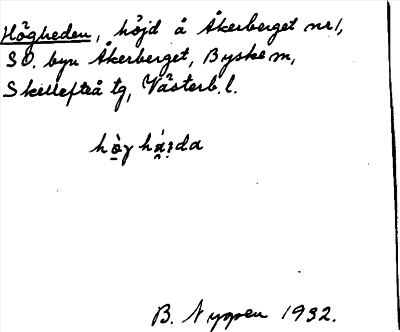 Högheden, höjd å Åkerberget nr 1,
SO. byn Åkerberget, Byske sn,
Skellefteå tg, Västerb. l.
B. Nygren 1932.